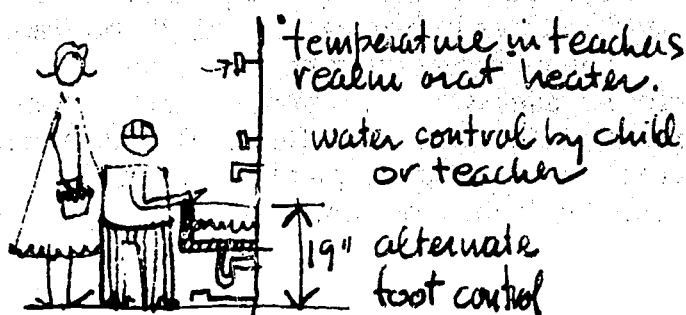 temperature in teachers
realm or at heater.
water control by child
or teacher
19" alternate
foot control